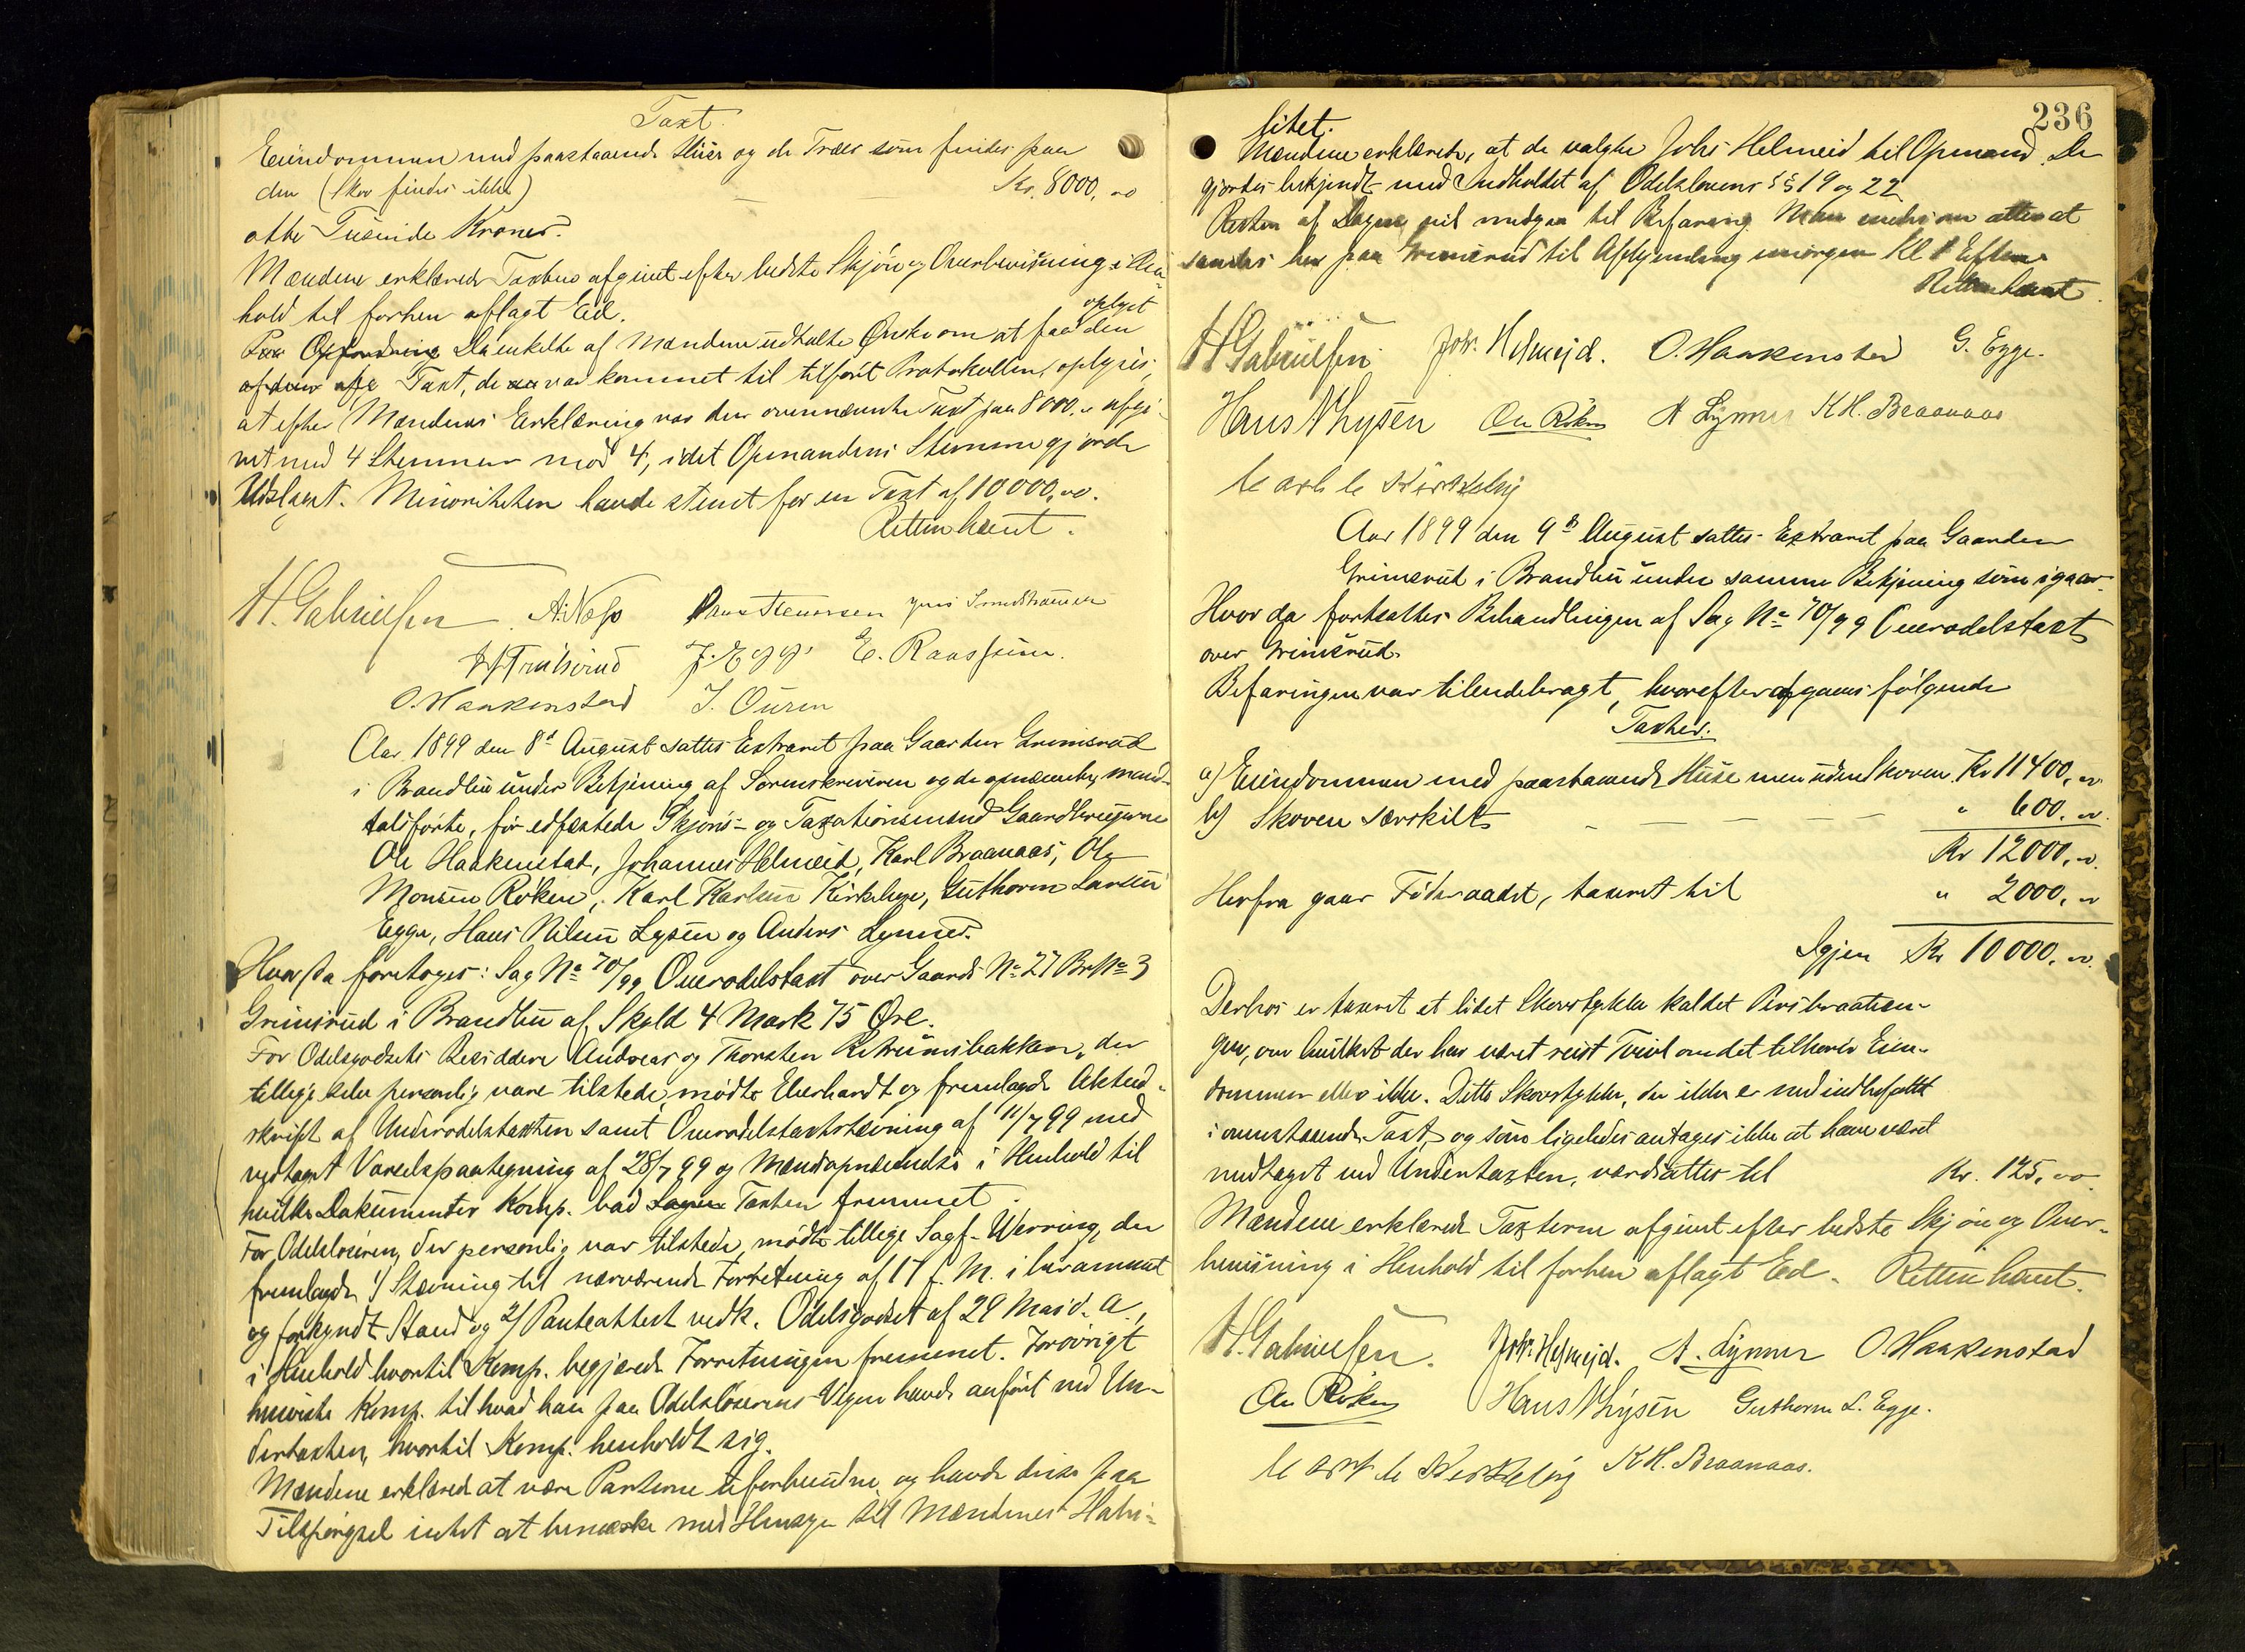 Taxt.
Eiendommen med paastaaende Huse og de Træer som findes paa
den (Skov findes ikke) — Kr. 8000,00
otte Tusinde Kroner.
Mændene erklærede Taxten afgivet efter bedste Skjøn og Overbevisning i Hen-
hold til forhen aflagt Ed.
oplyst
Paa Opfordring Da enkelte af Mændene udtalte Ønske om at faa den
Taxt, de var kommet til tilført Protokollen, oplyses,
at efter Mændenes Erklæring var den ovennævnte Taxt paa 8000,00 afgi-
vet med 4 Stemmer mod 4, idet Opmandens Stemme gjorde
Udslaget. Minoriteten havde stemt for en Taxt af 10000,00.
Retten hævet.
H. Gabrielsen A. Næss
J. Egge E. Raassum.
O. Haakenstad I. Ouren
Aar 1899 den 8de August sattes Extraret paa Gaarden Grimsrud
i Brandbu under Betjening af Sorenskriveren og de opnævnte, mand-
talsførte, før edfæstede Skjøns- og Taxationsmænd Gaardbrugerne
Ole Haakenstad, Johannes Helmeid, Karl Braanaas, Ole
Monsen Røken, Karl Karlsen Kirkeby, Guthorm Larsen
Egge, Hans Nilsen Lysen og Anders Lynner.
Hvor da foretoges: Sag No 70/99 Overodelstaxt over Gaards No 27 Br. No 3
Grimsrud i Brandbu af Skyld 4 Mark 75 Øre.
For Odelsgodsets Besiddere Andreas og Thorsten Retrumsbakken, der
tillige selv personlig vare tilstede, mødte Eberhardt og fremlagde Aktud-
skrift af Underodelstaxten samt Overodelstaxtstævning af 11/7 99 med
vedtaget Varselspaategning af 28/7 99 og Mændsopnævnelse i Henhold til
hvilke Dokumenter Komp. bad Sagen Taxten fremmet.
For Odelsløseren, der personlig var tilstede, mødte tillige Sagf. Werring, der
fremlagde 1/ Stævning til nærværende Forretning af 17 f. M. i beramet
og forkyndt Stand og 2/ Panteattest vedk. Odelsgodset af 29 Mai d. A.,
i Henhold hvortil Komp. begjærede Forretningen fremmet. Forøvrigt
henviste Komp. til hvad han paa Odelsløserens Vegne havde anført ved Un-
dertaxten, hvortil Komp. henholdt sig.
Mændene erklærede at være Parterne uforbundne og havde disse paa
Tilspørgsel intet at bemærke med Hensyn til Mændenes Habi-
236
litet.
Mændene erklærede, at de valgte Johs Helmeid til Opmand. De
gjordes bekjendt med Indholdet af Odelslovens §§ 19 og 22.
Resten af Dagen vil medgaa til Befaring. Man enedes om atter at
samles her paa Grimsrud til Afhjemling imorgen Kl 1 Efterm.
Retten hævet.
H Gabrielsen. Joh. Helmejd. O. Haakenstad G. Egge.
Hans N Lysen Ole Røken A Lynner K H. Braanaas
Carl C Kirkeby
Aar 1899 den 9de August sattes Extraret paa Gaarden
Grimsrud i Brandbu under samme Betjening som igaar.
Hvor da fortsattes Behandlingen af Sag No 70/99 Overodelstaxt
over Grimsrud.
Befaringen var tilendebragt, hvorefter afgaves følgende
Taxter.
a) Eiendommen med paastaaende Huse men uden Skoven Kr 11400,00
b) Skoven særskilt — — — " 600,00.
Kr 12000,00.
Herfra gaar Føderaadet, taxeret til " 2000,00
Igjen Kr 10000,00.
Derhos er taxeret et lidet Skovstykke kaldet Persbraaten-
gen, om hvilket der har været reist Tvivl om det tilhører Eien-
dommen eller ikke. Dette Skovstykke, der ikke er med indbefattet
i ovenstaaende Taxt, og som ligeledes antages ikke at have været
medtaget ved Undertaxten, værdsættes til Kr. 125,00.
Mændene erklærede Taxterne afgivet efter bedste Skjøn og Over-
bevisning i Henhold til forhen aflagt Ed. Retten hævet.
H. Gabrielsen. Joh. Helmejd. A. Lynner O. Haakenstad
Ole Røken Hans N Lysen Guthorm L. Egge.
Carl C Kirkeby K H. Braanaas.